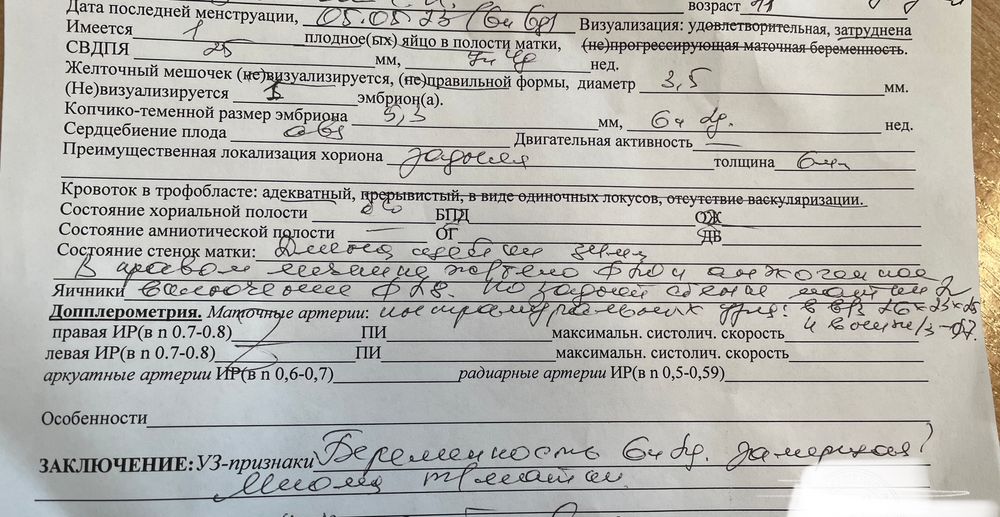 возраст
Дата последней менструации, 05.05.23 (6н 6д) Визуализация: удовлетворительная, затруднена
Имеется 1 плодное(ых) яйцо в полости матки, (не)прогрессирующая маточная беременность.
СВДПЯ 25 мм, 7н 4д нед.
Желточный мешочек (не)визуализируется, (не)правильной формы, диаметр 3,5 мм.
(Не)визуализируется 1 эмбрион(а).
Копчико-теменной размер эмбриона 5,3 мм, 6н 2д. нед.
Сердцебиение плода Двигательная активность —
Преимущественная локализация хориона задняя толщина 6мм
Кровоток в трофобласте: адекватный, прерывистый, в виде одиночных локусов, отсутствие васкуляризации.
Состояние хориальной полости БПД ОЖ
Состояние амниотической полости — ОГ ДБ
Состояние стенок матки: Длина шейки
В правом яичнике желтое ф20 и анэхогенное
Яичники включение ф28. По задней стенке матки 2
Допплерометрия. Маточные артерии: интрамуральных узла: в в/3 26×23×25
и в н/3
правая ИР(в n 0.7-0.8) ПИ максимальн. систолич. скорость
левая ИР(в n 0.7-0.8) ПИ максимальн. систолич. скорость
аркуатные артерии ИР(в n 0,6-0,7) радиарные артерии ИР(в n 0,5-0,59)
Особенности
ЗАКЛЮЧЕНИЕ: УЗ-признаки Беременность 6н 2д. замершая?
Миома матки.